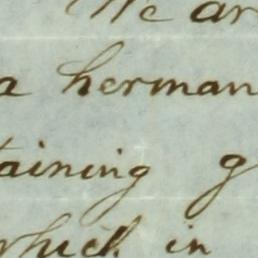 We ar
a herman
taining g
which in